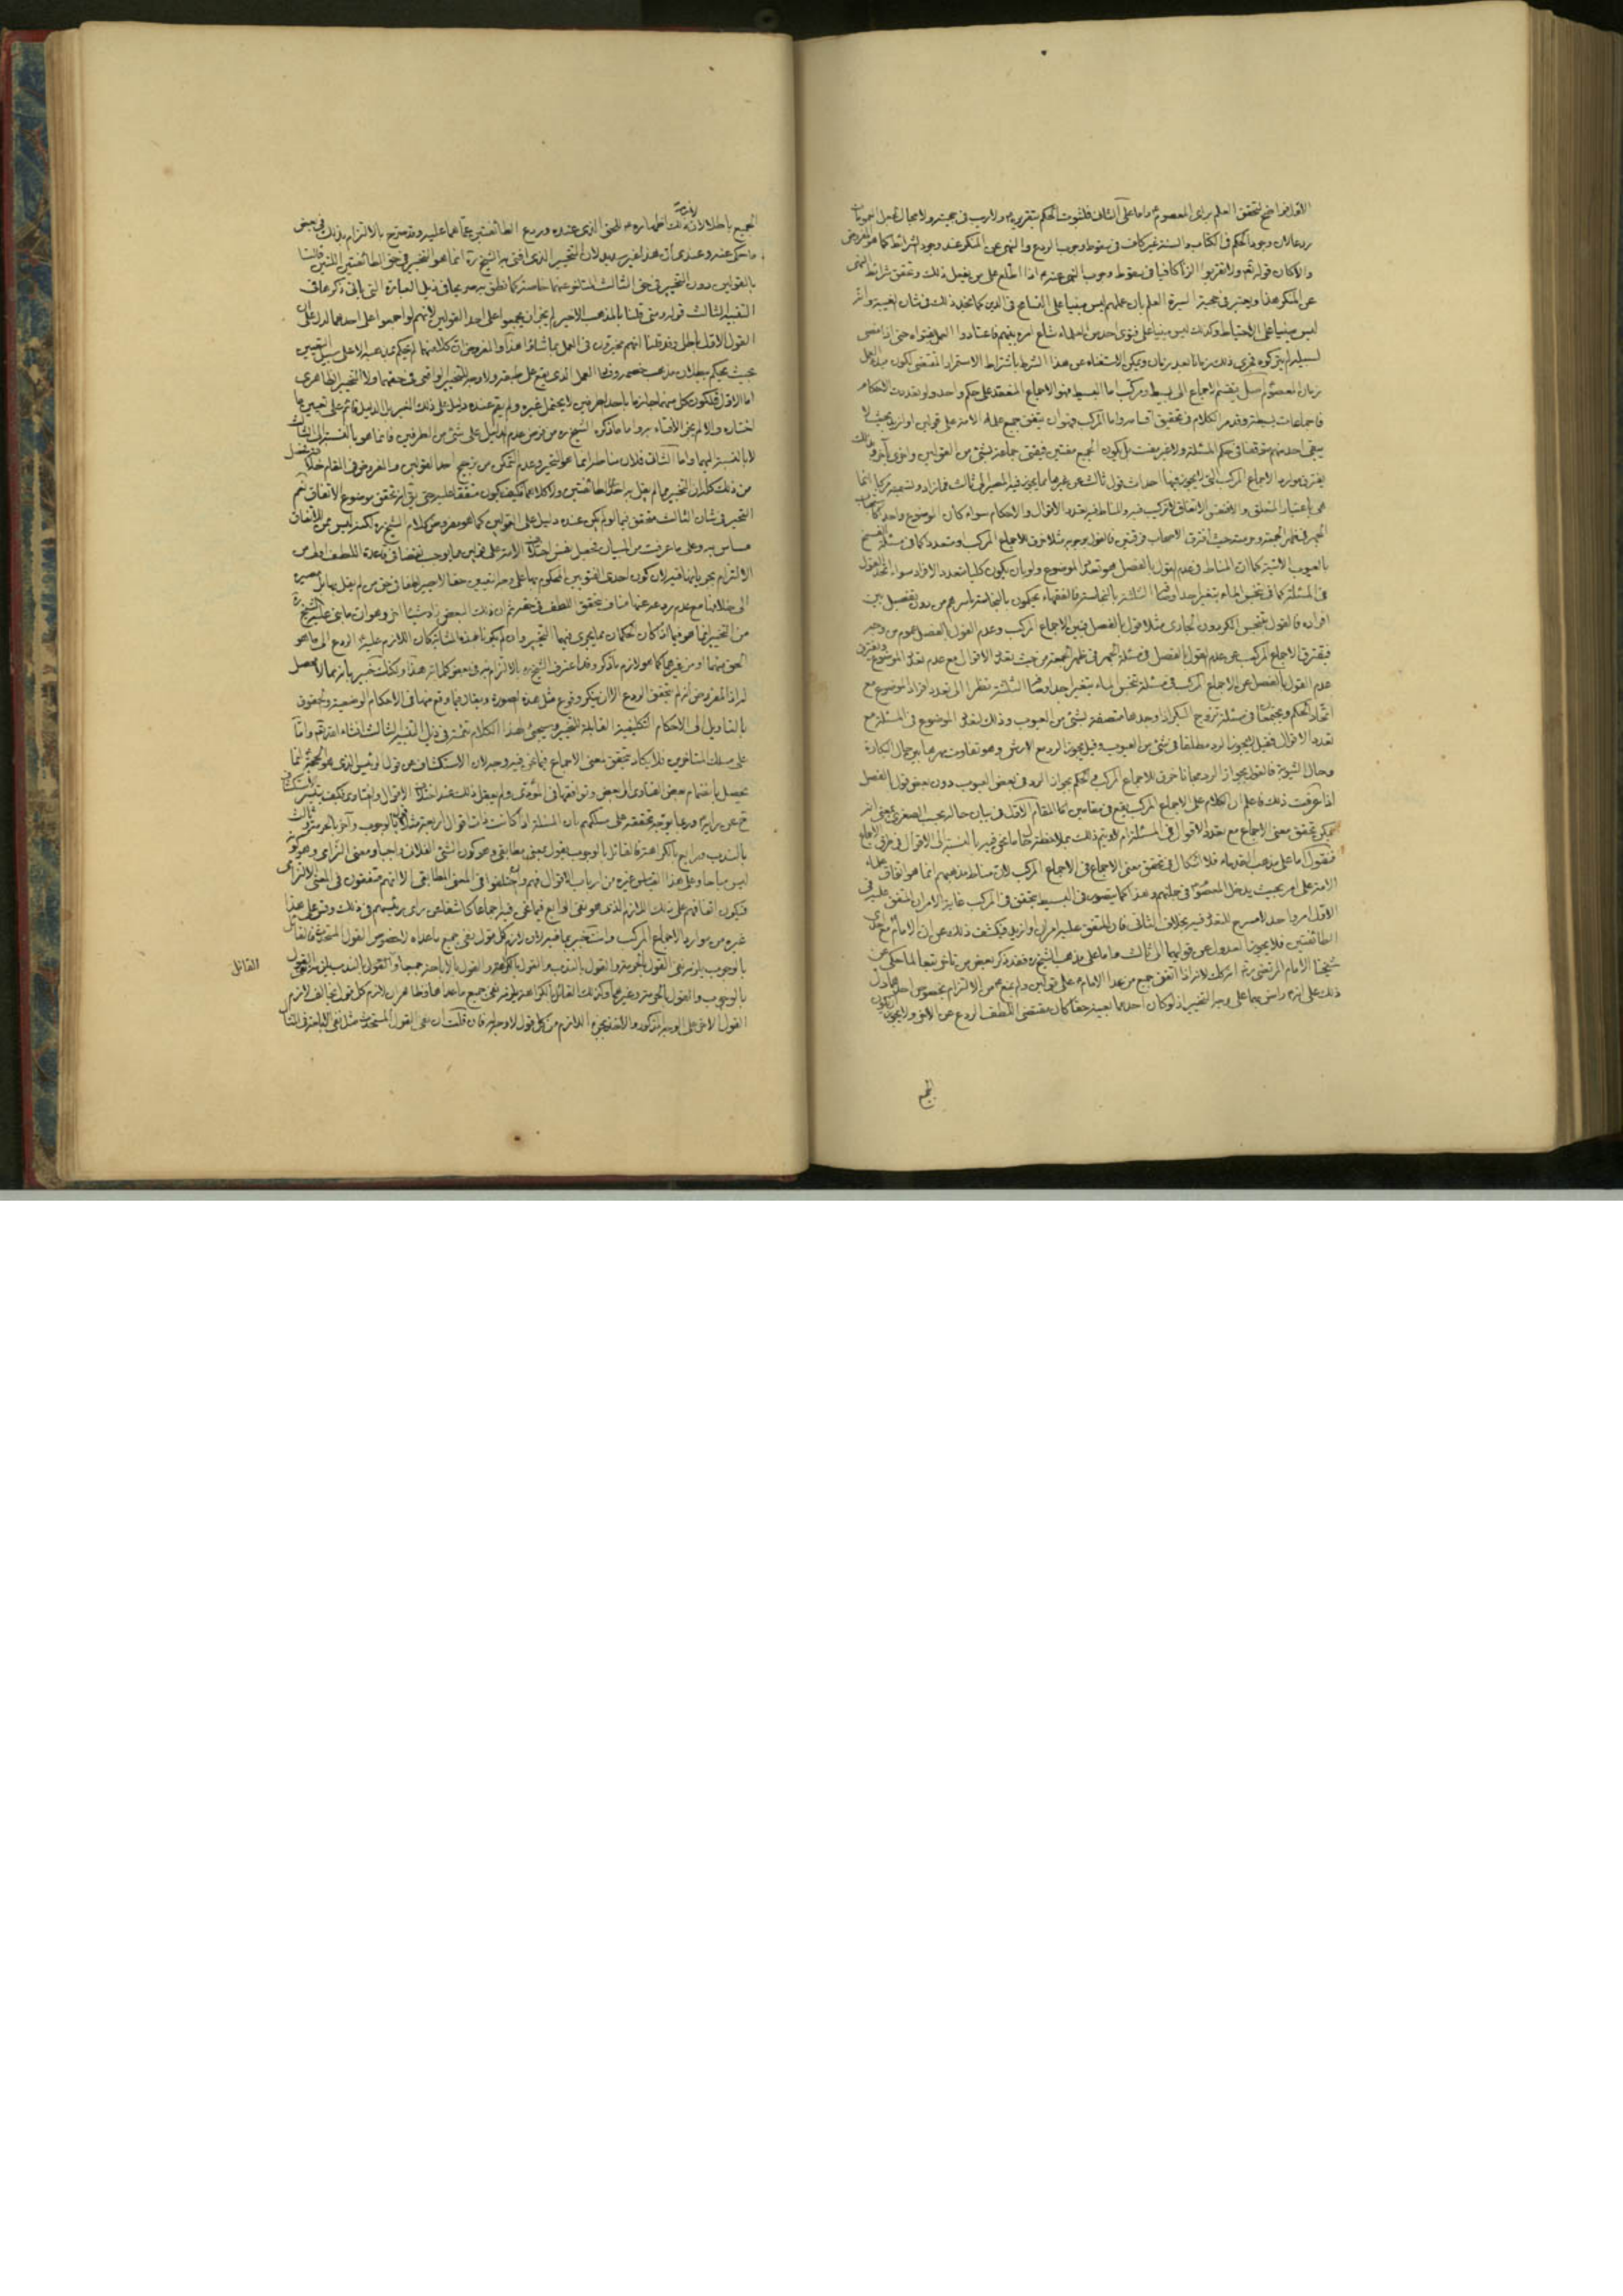 الاول فواضح لتحقق العلم برأى المعصوم واما على الثانى فلثبوت الحكم بتقريره ولا ريب فى حجيته ولا مجال
ردعا لان وجود الحكم فى الكتاب والسنة غير كاف فى سقوط وجوب الردع والنهى عن المنكر عند وجود شرائطه كما هو المفروض
والا لكان قوله تعالى ولا تقربوا الزنا كافيا فى سقوط وجوب النهى عنه اذا اطلع على من يفعل ذلك وتحقق شرائط النهى
عن المنكر هذا ويعتبر فى حجية السيرة العلم بان عملهم ليس مبنيا على التسامح فى الدين كما يتخذ ذلك فى شأن الغيبة وانه
ليس مبنيا على الاحتياط وكذلك ليس مبنيا على فتوى احد من العلماء شاع امره بينهم فاعتادوا العمل بفتواه حتى اذا مضى
لسبيله لم يتركوه فجرى ذلك زمانا بعد زمان ويمكن الاستغناء عن هذا الشرط باشتراط الاستمرار المقتضى لكون مبدء العمل
زمان المعصوم اصل ينقسم الاجماع الى بسيط ومركب اما البسيط فهو الاجماع المنعقد على حكم واحد ولو تعددت الاحكام
فاجماعات بسيطة وقد مر الكلام فى تحقيق اقسامه واما المركب فهو ان يتفق جميع علماء الامة على قولين او ازيد بحيث لا
يبقى احد منهم متوقفا فى حكم المسئلة ولا غير مفت بل يكون الجميع مفتين فيفتى جماعة بشئ من القولين واخرى بآخر وبذلك
يفترق موارد الاجماع المركب التى لا يجوز فيها احداث قول ثالث عن غيرها مما يجوز فيه المصير الى ثالث فما زاد وتسميته مركبا انما
هى باعتبار المتعلق والا فنفس الاتفاق لا تركيب فيه والمناط فيه تعدد الاقوال والاحكام سواء كان الموضوع واحدا كما
الجهر فى ظهر الجمعة وحرمته حيث افترق الاصحاب فرقتين فالقول بوجوبه مثلا خرق للاجماع المركب او متعدد كما فى مسئلة الفسخ
بالعيوب الاتية كما ان المناط فى عدم القول بالفصل هو تعدد الموضوع ولو بان يكون كليا متعدد الافراد سواء اتحد القول
فى المسئلة كما فى تنجس الماء بتغير احد اوصافه الثلثة بالنجاسة فالفقهاء يحكمون بالنجاسة باسرهم من دون تفصيل بين
افراده فالقول بتنجس الكر دون الجارى مثلا قول بالفصل فبين الاجماع المركب وعدم القول بالفصل عموم من وجه
فيفترق الاجماع المركب عن عدم القول بالفصل فى مسئلة الجهر فى ظهر الجمعة من حيث تعدد الاقوال مع عدم تعدد الموضوع ويفترق
عدم القول بالفصل عن الاجماع المركب فى مسئلة تنجس الماء بتغير احد اوصافه الثلثة نظرا الى تعدد افراد الموضوع مع
اتحاد الحكم ويجتمعان فى مسئلة تزوج البكر اذا وجدها متصفة بشئ من العيوب وذلك لتعدد الموضوع فى المسئلة مع
تعدد الاقوال فقيل لا يجوز الرد مطلقا فى شئ من العيوب وقيل يجوز الرد مع الارش وهو تفاوت مهرها بين حال البكارة
وحال الثيوبة فالقول بجواز الرد مجانا خرق للاجماع المركب والحكم بجواز الرد فى بعض العيوب دون بعض قول بالفصل
اذا عرفت ذلك فاعلم ان الكلام على الاجماع المركب يقع فى مقامين اما المقام الاول فى بيان حاله بحسب الصغرى بمعنى انه
يمكن تحقق معنى الاجماع مع تعدد الاقوال فى المسئلة ام لا
فنقول اما على مذهب القدماء فلا اشكال فى تحقق معنى الاجماع فى الاجماع المركب لان مناط مذهبهم انما هو اتفاق علماء
الامة على امر بحيث يدخل المعصوم فى جملتهم وهذا كما يتصور فى البسيط يتحقق فى المركب غاية الامر ان المتفق عليه فى
الاول امر واحد لا مسرح للتعدد فيه بخلاف الثانى فان المتفق عليه امران او ازيد فيكشف ذلك عن ان الامام مع احدى
الطائفتين فلا يجوز العدول عن قوليهما الى ثالث واما على مذهب الشيخ ره فقد ذكر بعض من تاخر تبعا لما حكى عن
شيخنا الامام المرتضى انه كذلك لانه اذا اتفق جميع من عدا الامام ع على قولين ولم يمنعهم من الالتزام بخصوص احدهما دل
ذلك على انه راض بهما على وجه التخيير اذ لو كان احدهما بعينه حقا كان مقتضى اللطف الردع عن الاخر ولا يجوز ان يكون
الجميع
الجميع باطلا لان ذلك اظهاره ع للحق الذى عنده وردع الطائفتين عما هما عليه وقد صرح بالالتزام بذلك فى بعض
ما حكى عنه وعندى أن هذا غير سديد لان التخيير الذى افتى به الشيخ ره انما هو التخيير فى حق الطائفتين اللتين قالتا
بالقولين دون التخيير فى حق الثالث المتاخر عنهما خاصة كما نطق به صريحا فى ذيل العبارة التى يأتى ذكرها فى
التنبيه الثالث قوله ومتى قلنا بالمذهب الاخير لم يجز ان يجمعوا على احد القولين لانهم لو اجمعوا على احدهما لدل على ان
القول الاول باطل وقد قلنا انهم مخيرون فى العمل بما شاؤا هذا والمفروض ان كلا منهما لم يحكم بمذهبه الا على سبيل التعيين
بحيث يحكم ببطلان مذهب خصمه
اما الاول فلكون كل منهما جازما باحد الطرفين لا يحتمل غيره ولم يقم عنده دليل على ذلك التخيير بل الدليل قائم على تعيين ما
اختاره والا لم يجز الافتاء به واما ما ذكره الشيخ ره من فرض عدم الدليل على شئ من الطرفين فانما هو بالنسبة الى الثالث
لا بالنسبة اليهما واما الثانى فلان مناطه انما هو التخير وعدم التمكن من ترجيح احد القولين والمفروض فى المقام خلافه
من ذلك كله ان التخيير مما لم يقل به احدى الطائفتين ولا كلاهما فكيف يكون متفقا عليه حتى يق انه تحقق موضوع الاتفاق نعم
التخيير فى شأن الثالث متحقق فيما لو لم يكن عنده دليل على القولين كما هو مفروض كلام الشيخ ره لكنه ليس من الاتفاق
مساس به وعلى ما عرفت من البيان
الالتزام بجريانها فيه لان كون احدى الفتويين المحكوم بها على وجه التعيين حقا لا يصير لطفا فى حق من لم يقل بها بل مصيره
الى خلافها مع عدم ردعه عنها مناف لتحقق اللطف فى حقه ثم ان ذلك البعض زاد شيئا اخر وهو ان ما بنى عليه الشيخ ره
من التخيير انما هو فيما اذا كان الحكمان مما يجرى فيهما التخيير وان لم يكونا بهذه المثابة كان اللازم عليه ع الردع الى ما هو
الحق منهما او من غيرهما كما هو لازم ما ذكر وقد اعترف الشيخ ره بالالتزام به فى بعض كلماته هذا ولكنك خبير بانه مما لا محصل
له اذ المفروض انه لم يتحقق الردع الا ان ينكر وقوع مثل هذه الصورة ويقال فيما وقع منها فى الاحكام الوضعية والحقوق
بالتاويل الى الاحكام التكليفية القابلة للتخيير وسيجئ لهذا الكلام تتمة فى ذيل التنبيه الثالث انشاء الله تعالى واما
على مسلك المتاخرين فلا يكاد يتحقق معنى الاجماع فيما نحن فيه وجدان الاستكشاف عن قول الرئيس الذى هو الحجة انما
يحصل بانضمام بعض الفتاوى الى بعض وتوافقها فى المؤدى ولم يعقل ذلك عند اختلاف الاقوال والفتاوى فكيف يتيسر الاستكشاف
ح عن رأيه ع وربما يوجه تحققه على مسلكهم بان المسئلة اذا كانت ذات اقوال اربعة مثلا قائل بالوجوب وآخر بالحرمة وثالث
بالندب ورابع بالكراهة فالقائل بالوجوب يقول بمعنى مطابقى وهو كون الشئ الفلانى واجبا ومعنى التزامى وهو كونه
ليس مباحا وعلى هذا القياس غيره من ارباب الاقوال فهم وان اختلفوا فى المعنى المطابقى الا انهم متفقون فى المعنى الالتزامى
فيكون اتفاقهم على ذلك اللازم الذى هو نفى الواقع فيما نحن فيه اجماعا كاشفا عن رأى رئيسهم فى ذلك وقس على هذا
غيره من موارد الاجماع المركب وانت خبير بما فيه لان لازم كل قول نفى جميع ما عداه لا خصوص القول المستحدث فالقائل
بالوجوب يلزمه نفى القول بالحرمة والقول بالندب والقول بالكراهة والقول بالاباحة جميعا والقول بالندب يلزمه نفى القول
بالوجوب والقول بالحرمة وغيرهما وكذلك القائل بالكراهة يلزمه نفى جميع ما عداها وظاهر ان لازم كل قول يخالف لازم
القول الاخر على الوجه المذكور والاخذ بجزء اللازم من كل قول لا وجه له فان قلت ان نفى القول المستحدث مثل نفى الاباحة فى المثال
القائل